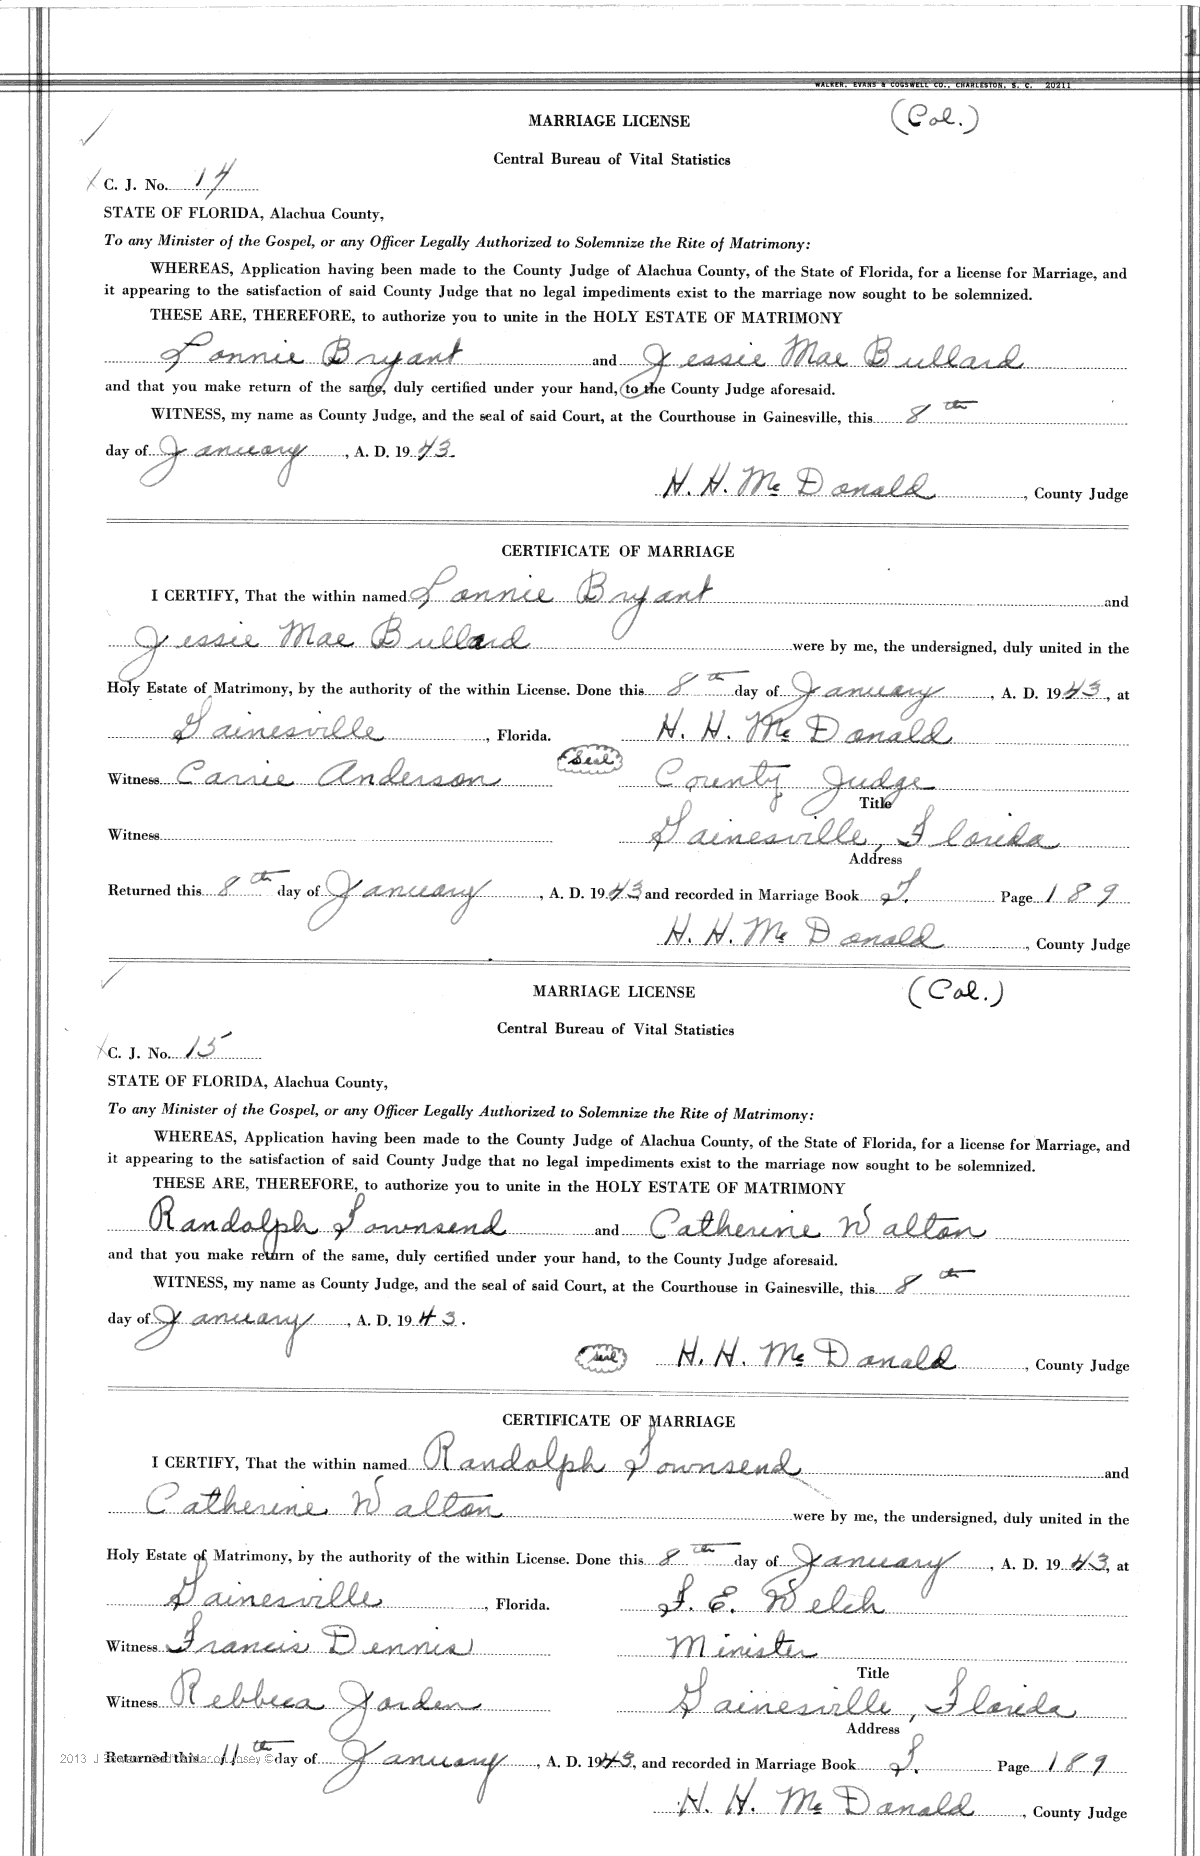 WALKER, EVANS & COGSWELL CO., CHARLESTON, S. C. 20211
MARRIAGE LICENSE (Col.)
Central Bureau of Vital Statistics
C. J. No. 14
STATE OF FLORIDA, Alachua County,
To any Minister of the Gospel, or any Officer Legally Authorized to Solemnize the Rite of Matrimony:
WHEREAS, Application having been made to the County Judge of Alachua County, of the State of Florida, for a license for Marriage, and
it appearing to the satisfaction of said County Judge that no legal impediments exist to the marriage now sought to be solemnized.
THESE ARE, THEREFORE, to authorize you to unite in the HOLY ESTATE OF MATRIMONY
Lonnie Bryant and Jessie Mae Bullard
and that you make return of the same, duly certified under your hand, to the County Judge aforesaid.
WITNESS, my name as County Judge, and the seal of said Court, at the Courthouse in Gainesville, this 8th
day of January, A. D. 1943.
H. H. McDonald, County Judge
CERTIFICATE OF MARRIAGE
I CERTIFY, That the within named Lonnie Bryant and
Jessie Mae Bullard were by me, the undersigned, duly united in the
Holy Estate of Matrimony, by the authority of the within License. Done this 8th day of January, A. D. 1943, at
Gainesville, Florida. H. H. McDonald
Seal
Witness Carrie Anderson County Judge
Title
Witness Gainesville, Florida
Address
Returned this 8th day of January, A. D. 1943 and recorded in Marriage Book Page 189
H. H. McDonald, County Judge
MARRIAGE LICENSE (Col.)
Central Bureau of Vital Statistics
C. J. No. 15
STATE OF FLORIDA, Alachua County,
To any Minister of the Gospel, or any Officer Legally Authorized to Solemnize the Rite of Matrimony:
WHEREAS, Application having been made to the County Judge of Alachua County, of the State of Florida, for a license for Marriage, and
it appearing to the satisfaction of said County Judge that no legal impediments exist to the marriage now sought to be solemnized.
THESE ARE, THEREFORE, to authorize you to unite in the HOLY ESTATE OF MATRIMONY
Randolph Townsend and Catherine Walton
and that you make return of the same, duly certified under your hand, to the County Judge aforesaid.
WITNESS, my name as County Judge, and the seal of said Court, at the Courthouse in Gainesville, this 8th
day of January, A. D. 1943.
Seal H. H. McDonald, County Judge
CERTIFICATE OF MARRIAGE
I CERTIFY, That the within named Randolph Townsend and
Catherine Walton were by me, the undersigned, duly united in the
Holy Estate of Matrimony, by the authority of the within License. Done this 8th day of January, A. D. 1943, at
Gainesville, Florida. E. Welch
Witness Francis Dennis Minister
Title
Witness Rebbeca Jorden Gainesville, Florida
Address
Returned this 11th day of January, A. D. 1943, and recorded in Marriage Book Page 189
H. H. McDonald, County Judge